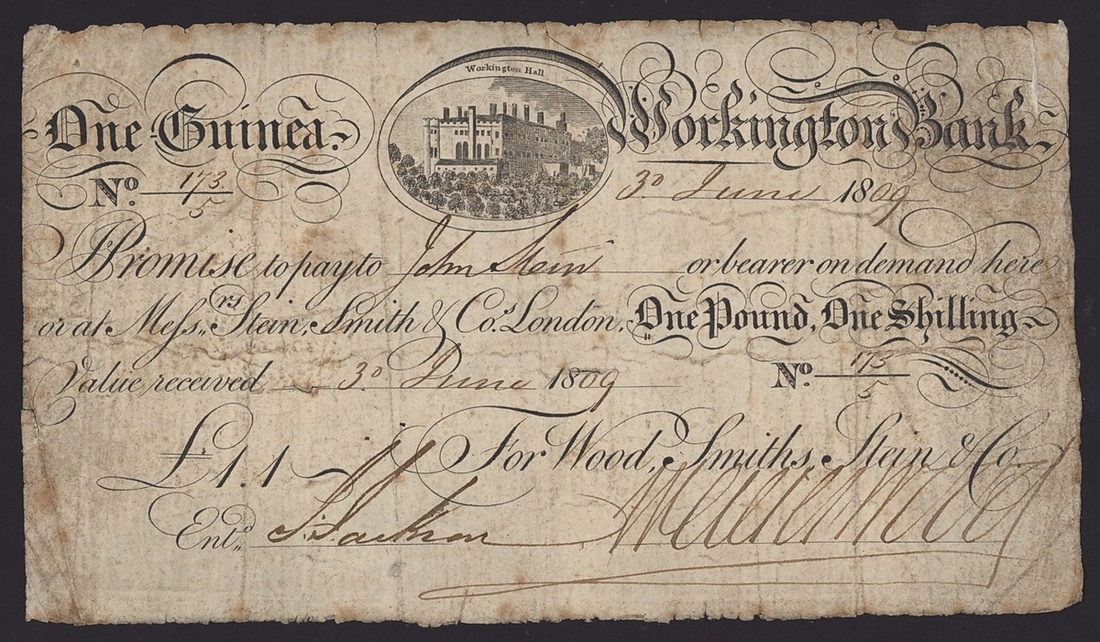 Workington Hall
One Guinea. Workington Bank
No. 173/5 30 June 1809
I Promise to pay to John Stein or bearer on demand here
or at Messrs Stein, Smith & Cos. London, One Pound, One Shilling
Value received 30 June 1809 No. 173/5
£1.1 For Wood, Smiths, Stein & Co.
Entd.